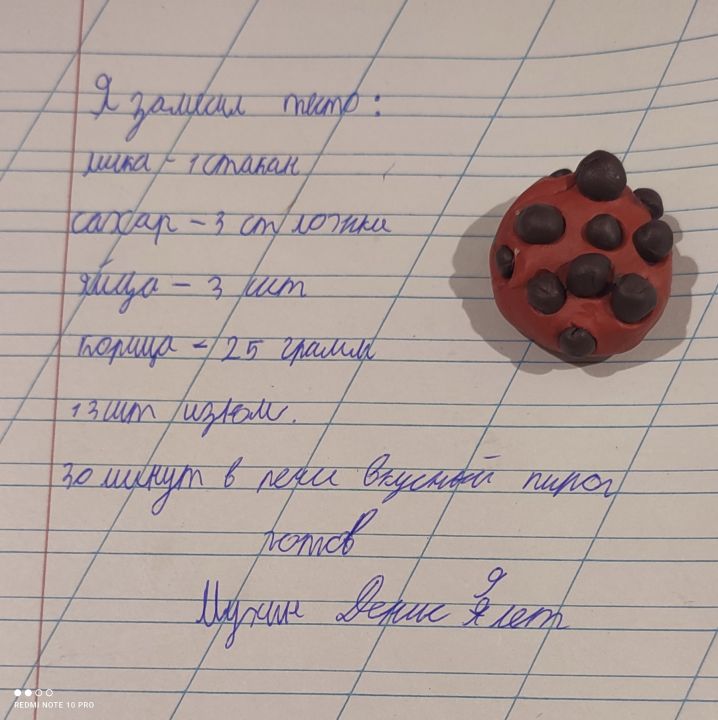 Я замесил тесто:
мука - 1 стакан
сахар - 3 ст ложки
яйца - 3 шт
корица - 25 грамм
13 шт изюм.
30 минут в печи вкусный пирог
готов
Мухин Денис 9 лет
REDMI NOTE 10 PRO